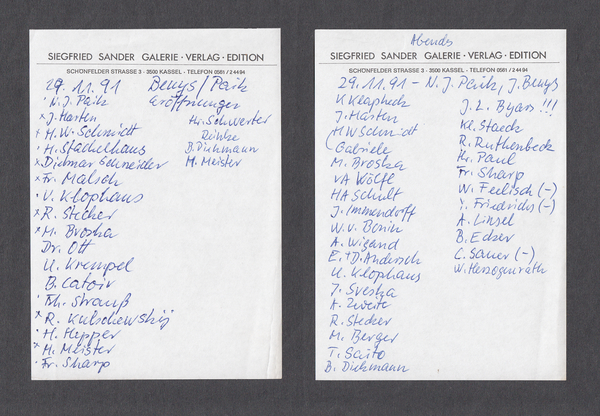 SIEGFRIED SANDER GALERIE · VERLAG · EDITION
SCHÖNFELDER STRASSE 3 · 3500 KASSEL · TELEFON 0561 / 2 44 94
29.11.91 Beuys / Paik
· N.J. Paik Eröffnungen
x J. Harten Hr. Schwerter
· H.W. Schmidt
· H. Stachelhaus B. Dickmann
x Dietmar Schneider H. Meister
x Fr. Malsch
· V. Klophaus
x R. Stecker
x M. Broska
Dr. Ott
U. Krempel
B. Catoir
· Th. Strauß
x R. Kulschewskij
· H. Hepper
x H. Meister
· Fr. Sharp
Abends
SIEGFRIED SANDER GALERIE · VERLAG · EDITION
SCHÖNFELDER STRASSE 3 · 3500 KASSEL · TELEFON 0561 / 2 44 94
29.11.91 – N.J. Paik, J. Beuys
K Klapheck J.L. Byars !!!
J. Harten Kl. Staeck
HW Schmidt R. Ruthenbeck
Gabriele Hr. Paul
M. Broska Fr. Sharp
VA Wölfl W. Feelisch (–)
HA Schult Y. Friedrichs (–)
J. Immendorff A. Linsel
W. v. Bonin B. Ecker
A. Wigand C. Sauer (–)
E. + D. Andersch W. Herzogenrath
U. Klophaus
J. Sveska
A. Zweite
R. Stecker
M. Berger
T. Saito
B. Dickmann